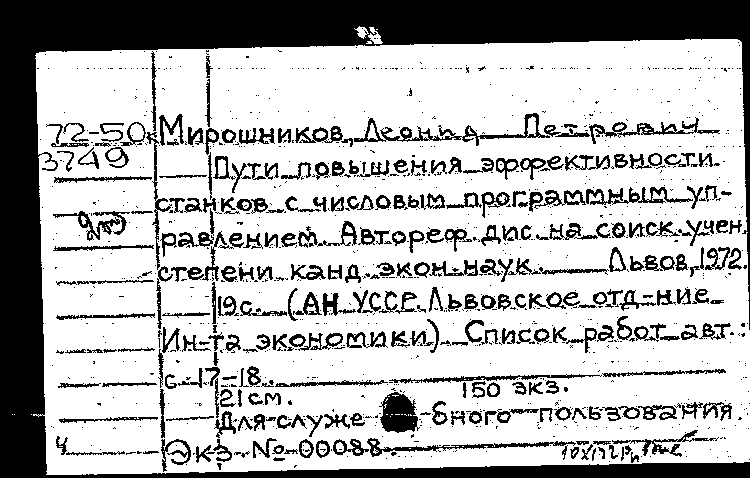 72-50к Мирошников, Леонид Петрович
3749 Пути повышения эффективности
станков с числовым программным уп-
дсп равлением. Автореф. дис. на соиск. учен.
степени канд. экон. наук. Львов, 1972.
19с. (АН УССР. Львовское отд-ние
Ин-та экономики). Список работ авт.:
с. 17-18.
21см. 150 экз.
Для служе бного пользования.
Ч Экз. № 00088.